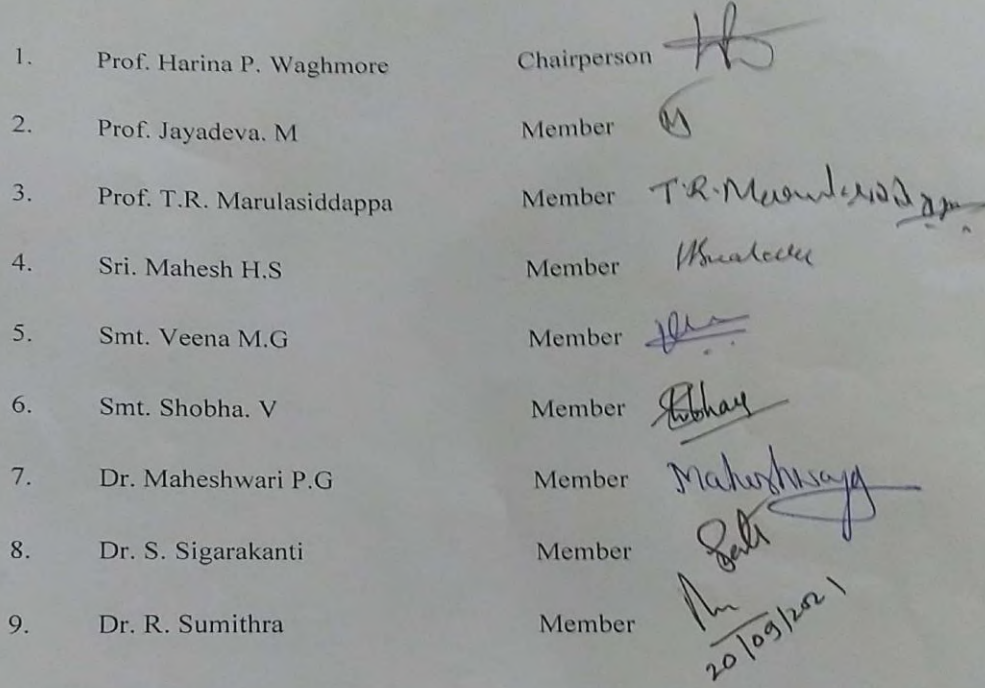 1. Prof. Harina P. Waghmore Chairperson
2. Prof. Jayadeva. M Member
3. Prof. T.R. Marulasiddappa Member T.R. Marulasiddappa
4. Sri. Mahesh H.S Member
5. Smt. Veena M.G Member
6. Smt. Shobha. V Member
7. Dr. Maheshwari P.G Member
8. Dr. S. Sigarakanti Member
9. Dr. R. Sumithra Member
20/09/2021